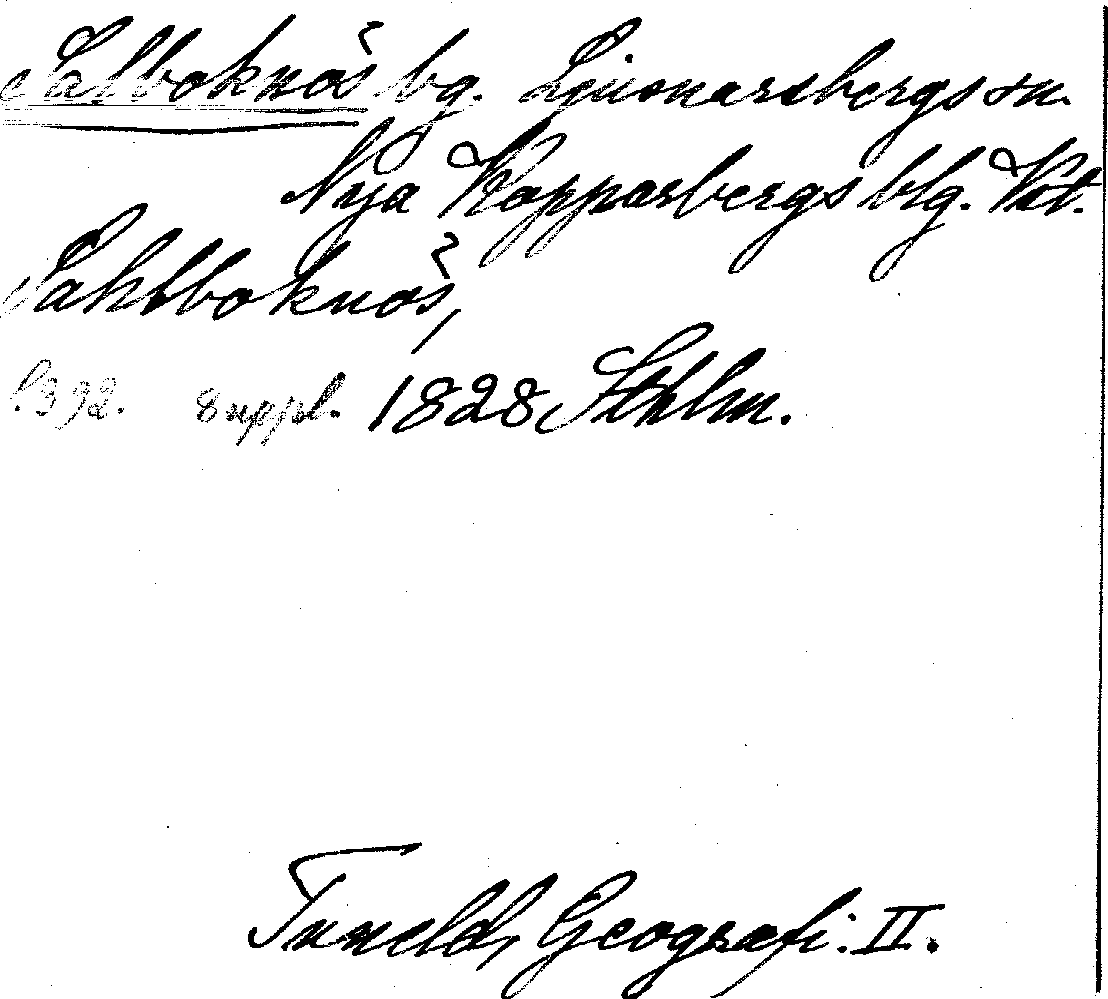 Salboknös bg. Ljusnarsbergs sn.
Nya Kopparbergs blg. Vst.
Sahlboknös,
s. 392. 8 uppl. 1828 Sthlm.
Tuneld, Geografi. II.